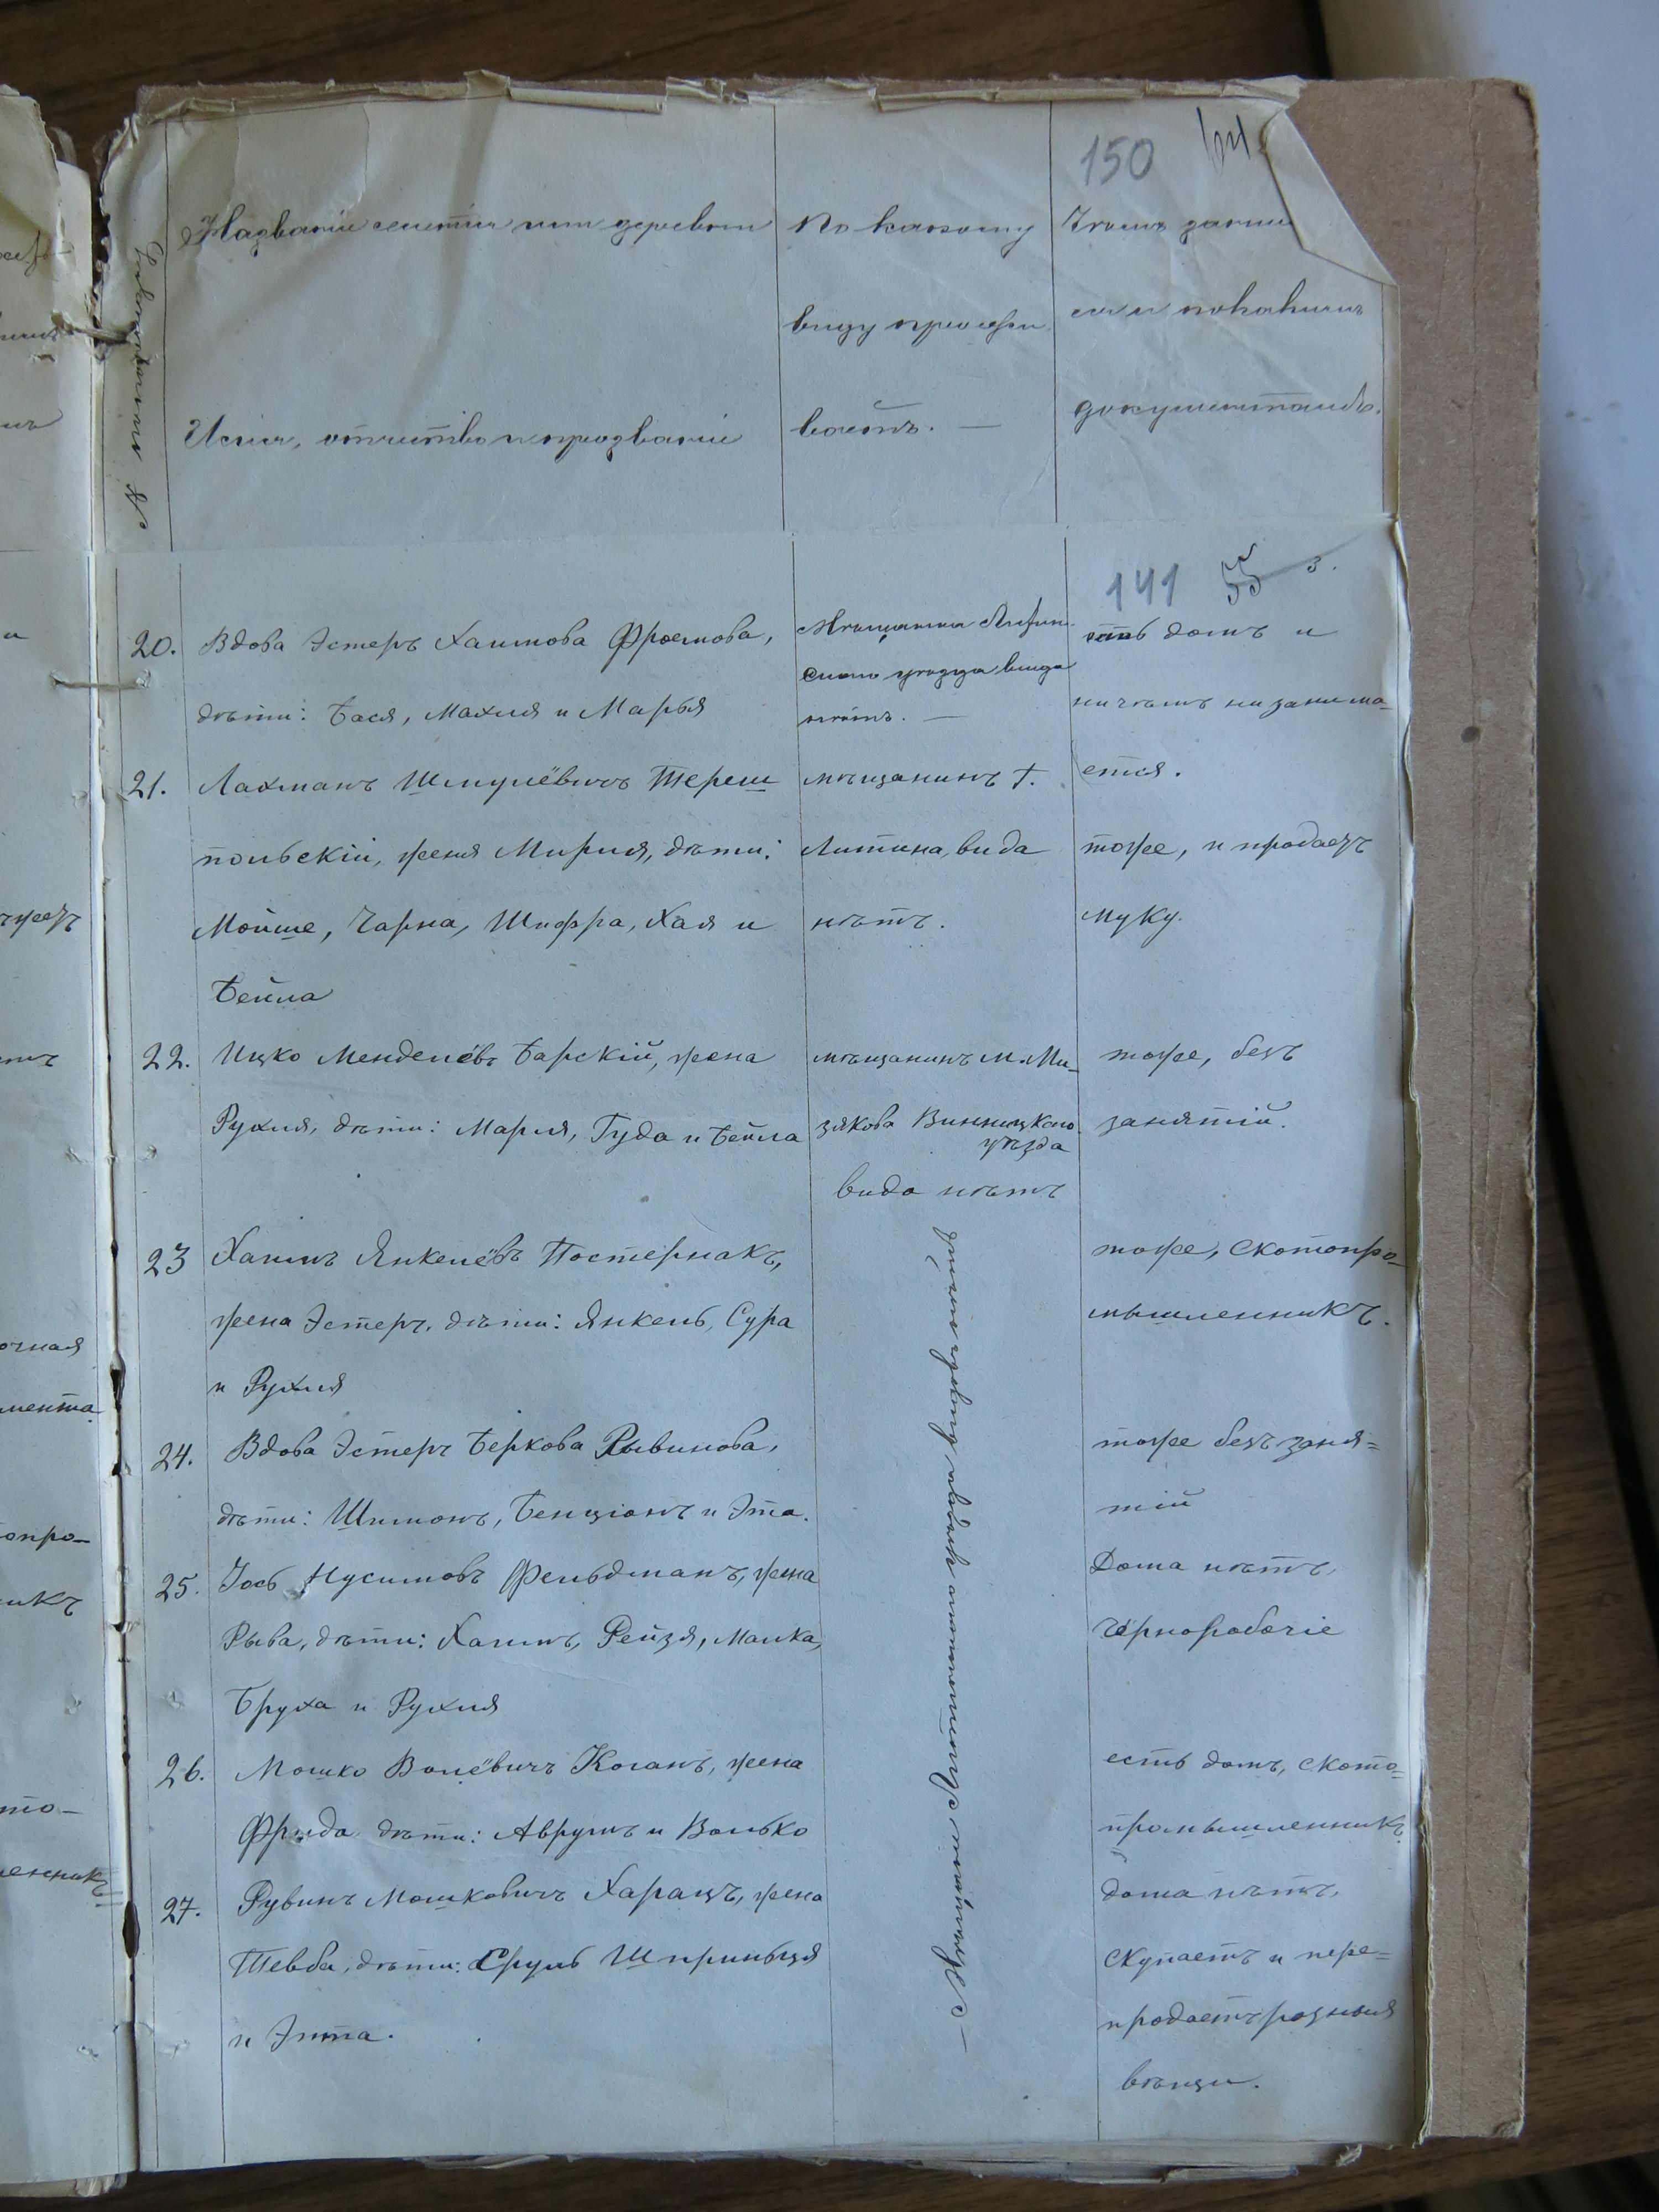 150
Название селенiя или деревни
Имя, отчество и прозванiе
По какому
виду прожи
ваетъ. —
Чемъ занима
документамъ.
№
141 55 3.
20. Вдова Эстеръ Хаимова Фроемова,
дѣти: Бася, Махля и Марья
Мѣщанка Литин-
скаго уѣзда вида
нѣтъ. —
есть домъ и
ничѣмъ не занима-
ется.
21. Лахманъ Шмулёвичъ Тереш
польскiй, жена Мирля, дѣти:
Мойше, Чарна, Шифра, Хая и
Бейла
мѣщанинъ г.
Литина, вида
нѣтъ.
тоже, и продаетъ
муку.
22. Ицко Менделёвъ Барскiй, жена
Рухля, дѣти: Марля, Гуда и Бейла
мѣщанинъ м. Ми-
зякова Винницкаго
уѣзда
вида нѣтъ
тоже, безъ
занятiй.
23 Хаимъ Янкелёвъ Постернакъ,
жена Эстеръ, дѣти: Янкель, Сура
и Рухля
тоже, скотопро-
мышленникъ.
24. Вдова Эстеръ Беркова Рывинова,
дѣти: Шимонъ, Бенцiонъ и Эта.
тоже безъ заня=
тiй
25. Iось Нусимовъ Фельдманъ, жена
Рыва, дѣти: Хаимъ, Рейзя, Малка,
Бруха и Рухля
Дома нѣтъ,
чёрнорабочiе
26. Мошко Волёвичъ Коганъ, жена
Фрида дѣти: Аврумъ и Волько
есть домъ, ското=
промышленникъ
27. Рувинъ Мошковичъ Харацъ, жена
Тевба, дѣти: Сруль Шпринъця
и Энта.
дома нѣтъ,
скупаетъ и пере=
продаетъ разныя
вѣщи.
— Мѣщане Литинскаго уѣзда